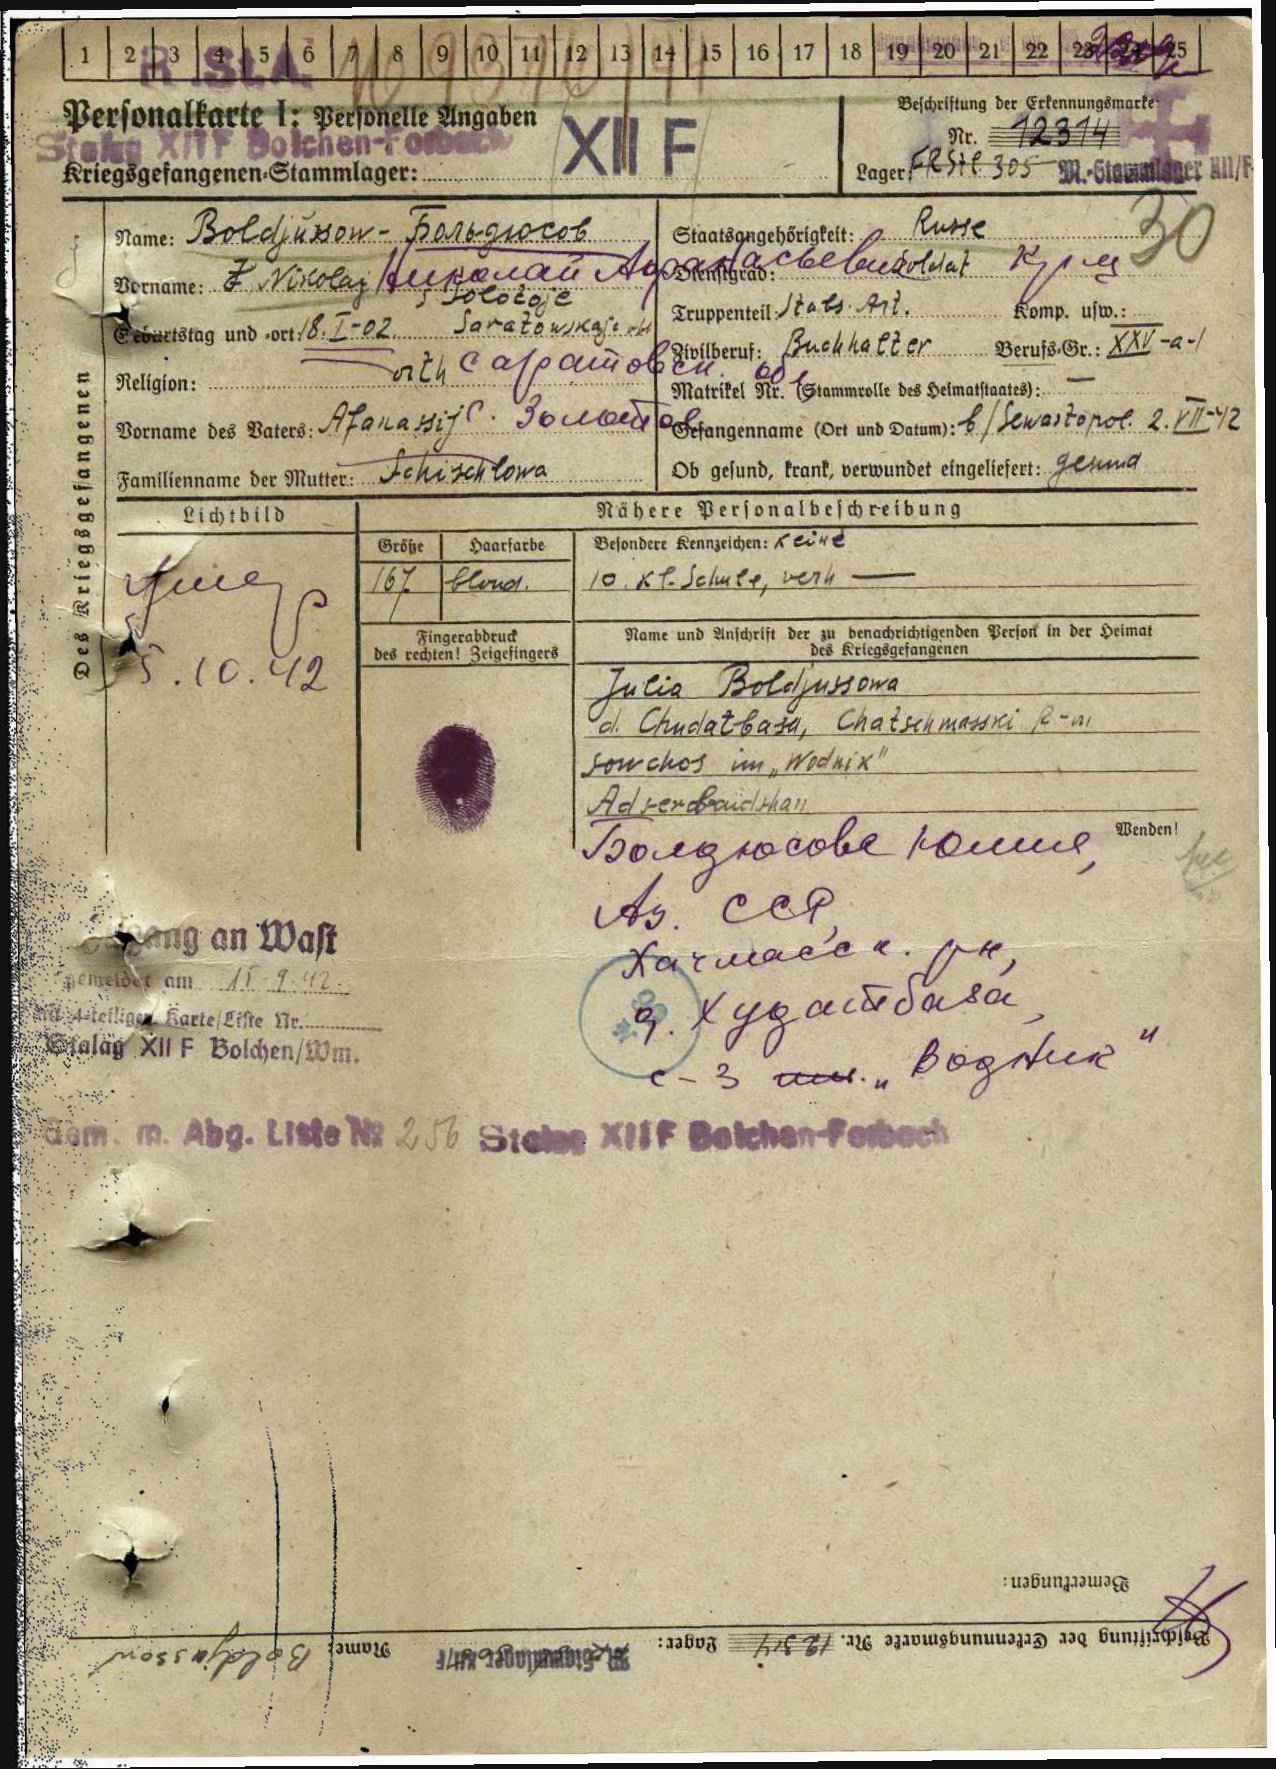 1 2 3 4 5 6 7 8 9 10 11 12 13 14 15 16 17 18 19 20 21 22 23 24 25
Personalkarte I: Personelle Angaben
Stalag XII F Bolchen-Forbach
Kriegsgefangenen-Stammlager: XII F
Beschriftung der Erkennungsmarke
Nr. 12314
Lager: FRStl. 305 M.-Stammlager XII/F
30
Des Kriegsgefangenen
Name: Boldjussow - Больдюсов
Vorname: Nikolaj Николай Афанасьевич
Solotoje
Geburtstag und -ort: 18. I-02. Saratowskaja
Religion: orth Саратовск. обл
Vorname des Vaters: Afanassij с. Золотов
Familienname der Mutter: Schischlowa
Staatsangehörigkeit: Russe
Dienstgrad: Soldat
Truppenteil: Stabs. Art. Komp. usw.:
Zivilberuf: Buchhalter Berufs-Gr.: XXV-a-1
Matrikel Nr. (Stammrolle des Heimatstaates): —
Gefangenname (Ort und Datum): b/Sewastopol. 2. VII-42
Ob gesund, krank, verwundet eingeliefert: gesund
Lichtbild
Nähere Personalbeschreibung
Größe Haarfarbe Besondere Kennzeichen: keine
167 blond. 10. Kl. Schule, verh —
5.10.42
Fingerabdruck
des rechten! Zeigefingers
Name und Anschrift der zu benachrichtigenden Person in der Heimat
des Kriegsgefangenen
Julia Boldjussowa
d. Chudatbasa, Chatschmasski R-n
Sowchos im „Wodnik"
Aderbaidshan
Wenden!
Болдюсове Юлие,
Аз. ССР,
Хачмасск. рн,
д. Худатбаза,
с-з им. „Водник"
gang an Wast
gemeldet am 15.9.42.
mit 4-teiliger Karte/Liste Nr.
Stalag XII F Bolchen/Wm.
Gem. m. Abg. Liste № 256 Stalag XII F Bolchen-Forbach
Bemerkungen:
Beschriftung der Erkennungsmarke Nr. 12314 Lager: M.-Stammlager XII/F Name: Boldjussow